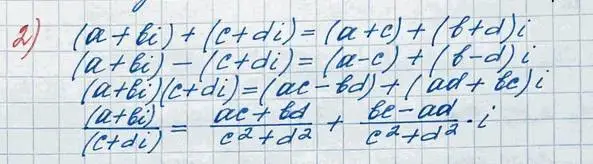 2) (a + bi) + (c + di) = (a + c) + (b + d)i
(a + bi) - (c + di) = (a - c) + (b - d)i
(a + bi)(c + di) = (ac - bd) + (ad + bc)i
(a + bi)/(c + di) = (ac + bd)/(c² + d²) + (bc - ad)/(c² + d²) · i